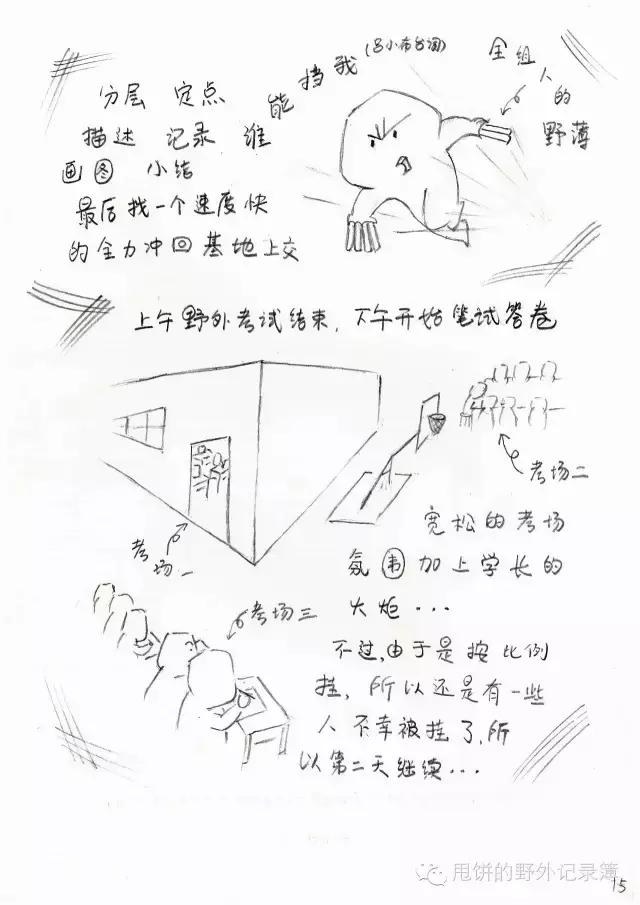 分层 定点
描述 记录 谁能挡我(吕小布台词)
画图 小结
最后找一个速度快
的全力冲回基地上交
全组人的
野薄
上午野外考试结束,下午开始笔试答卷
考场一
考场二
宽松的考场
氛围加上学长的
火炬···
考场三
不过,由于是按比例
挂,所以还是有一些
人不幸被挂了,所
以第二天继续···
甩饼的野外记录簿
15